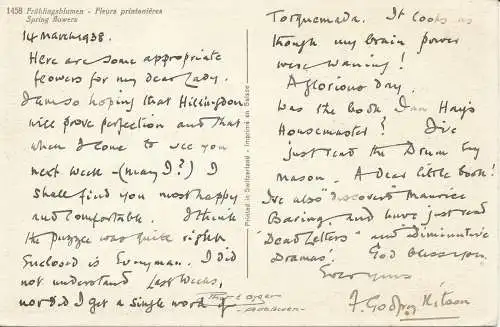 1458 Frühlingsblumen - Fleurs printanières
Spring flowers
14 March 1938.
Here are some appropriate
flowers for my dear Lady.
I am so hoping that Hillingdon
will prove perfection and that
when I come to see you
next week - (may I?) I
shall find you most happy
and comfortable. I think
the puzzle was quite right
Enclosed is Everyman. I did
not understand Last Week's,
nor did I get a single word of
Printed in Switzerland - Imprimé en Suisse
Torquemada. It looks as
though my brain power
were waning!
A glorious day.
Was the book Ian Hay's
Housemaster? I've
just read the Drum by
Mason. A dear little book!
I've also "discovered" Maurice
Baring, and have just read
"Dead Letters" and Diminutive
Dramas. God bless you.
Ever yours,
F. Godfrey